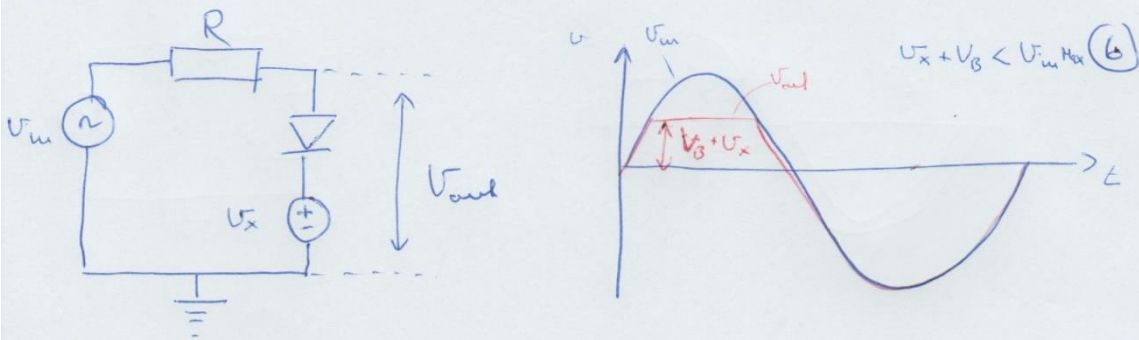 R
Vin
Vx
+
-
Vout
v
Vin
Vout
VB + Vx
t
Vx + VB < Vin Max
6